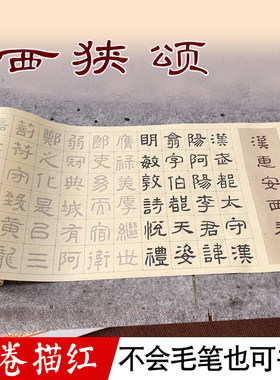 西狭颂
漢惠安西表
漢武都太守漢
陽阿陽李君諱
翕字伯都天姿
明敏敦詩悅禮
膺祿美厚繼世
郎吏幼而宿衛
弱冠典城有阿
鄭之化是以三
剖符守致黃龍
卷描红
不会毛笔也可